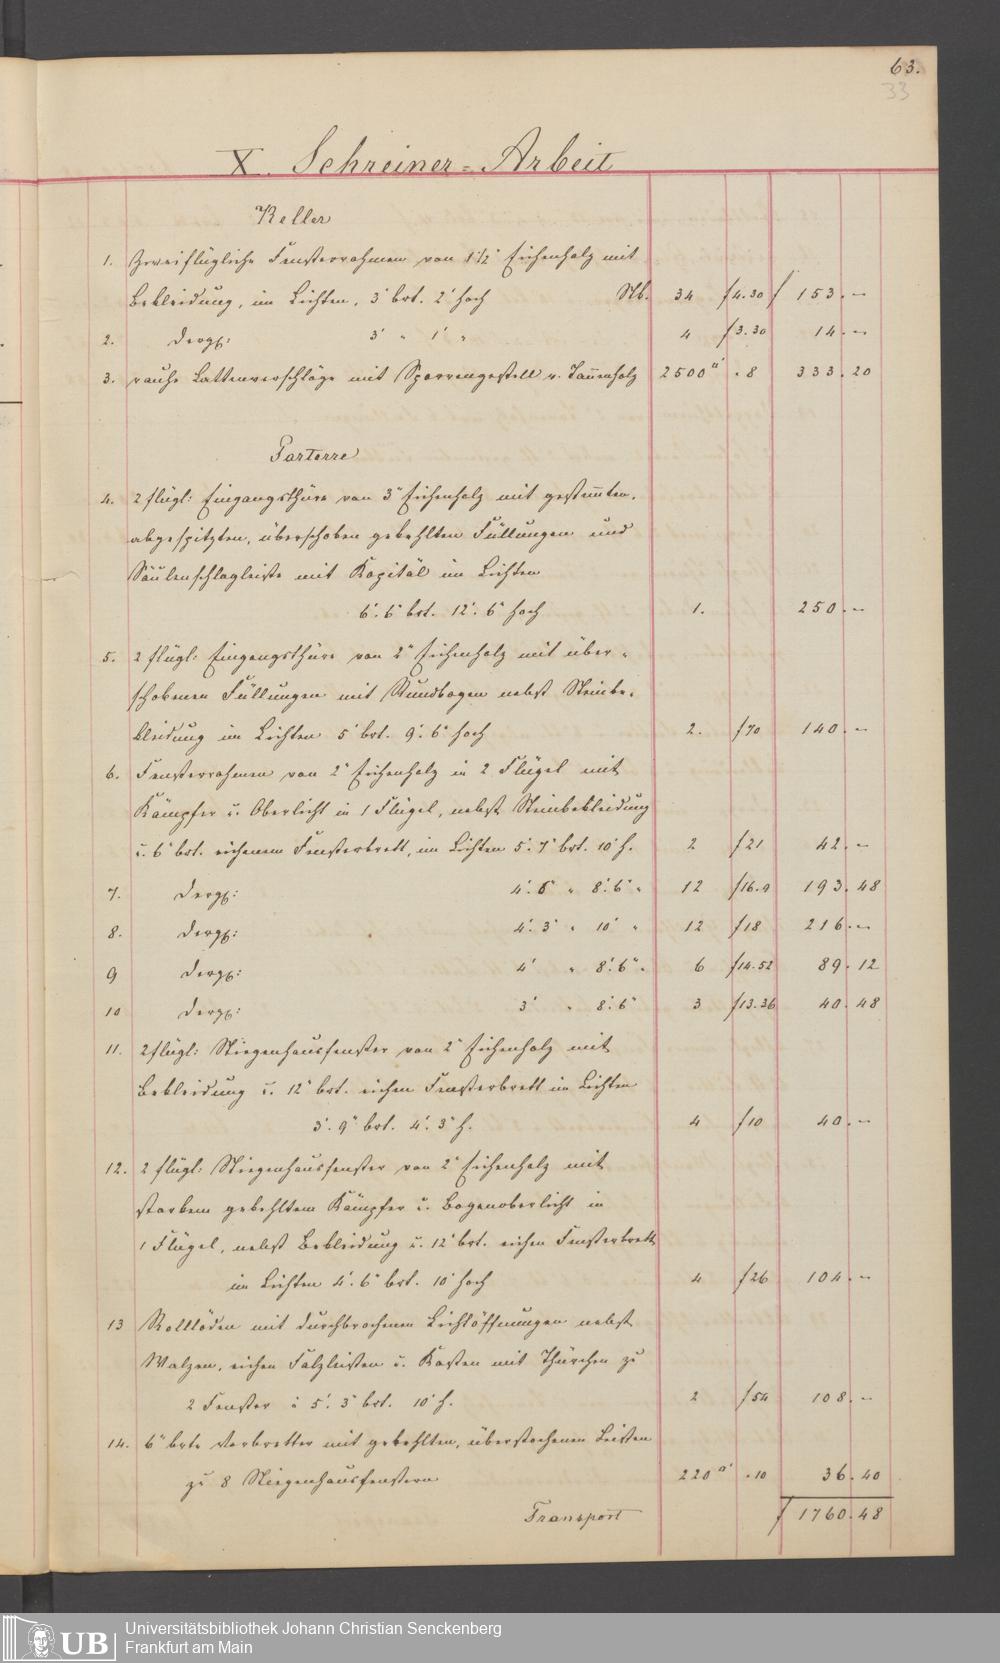 63.
33
X. Schreiner-Arbeit
Keller
1. Zweiflügliche Fensterrahmen von 1 1/2" Eichenholz mit
Bekleidung, im Lichten, 3' brt. 2' hoch Stk. 34 f 4.30 f 153. –
2. dergl: 3' " 1' " 4 f 3.30 14. –
3. rauhe Lattenverschläge mit Sparrengestell v. Tannenholz 2500□' . 8 333. 20
Parterre
4. 2 flügl: Eingangsthüre von 3" Eichenholz mit gestemten,
abgespitzten, überschoben gekehlten Füllungen und
Säulenschlagleiste mit Kapitäl im Lichten
6'. 6" brt. 12'. 6" hoch 1. 250. –
5. 2 flügl: Eingangsthüre von 2" Eichenholz mit über-
schobenen Füllungen mit Rundbogen nebst Steinbe-
kleidung im Lichten 5' brt. 9'. 6" hoch 2. f 70 140. –
6. Fensterrahmen von 2" Eichenholz in 2 Flügel mit
Kämpfer u. Oberlicht in 1 Flügel, nebst Steinbekleidung
u. 6" brt. eichenem Fensterbrett, im Lichten 5'. 7" brt. 10' h. 2 f 21 42. –
7. dergl: 4'. 6" " 8'. 6" " 12 f 16.9 193. 48
8. dergl: 4'. 3" " 10' " 12 f 18 216. –
9 dergl: 4' " 8'. 6" " 6 f 14.52 89. 12
10 dergl: 3' " 8'. 6" 3 f 13.36 40. 48
11. 2 flügl: Stiegenhausfenster von 2" Eichenholz mit
Bekleidung u. 12" brt. eichen Fensterbrett im Lichten
3'. 9" brt. 4'. 3" h. 4 f 10 40. –
12. 2 flügl: Stiegenhausfenster von 2" Eichenholz mit
starkem gekehltem Kämpfer u. Bogenoberlicht in
1 Flügel, nebst Bekleidung u. 12" brt. eichen Fensterbrett
im Lichten 4'. 6" brt. 10' hoch 4 f 26 104. –
13 Rollläden mit durchbrochenen Lichtöffnungen nebst
Walzen, eichen Falzleisten u. Kasten mit Thürchen zu
2 Fenster à 5'. 3" brt. 10' h. 2 f 54 108. –
14. 6" brte Vorbretter mit gekehlten, überstochenen Leisten
zu 8 Stiegenhausfenstern 220□' . 10 36. 40
Transport f 1760. 48
UB
Universitätsbibliothek Johann Christian Senckenberg
Frankfurt am Main